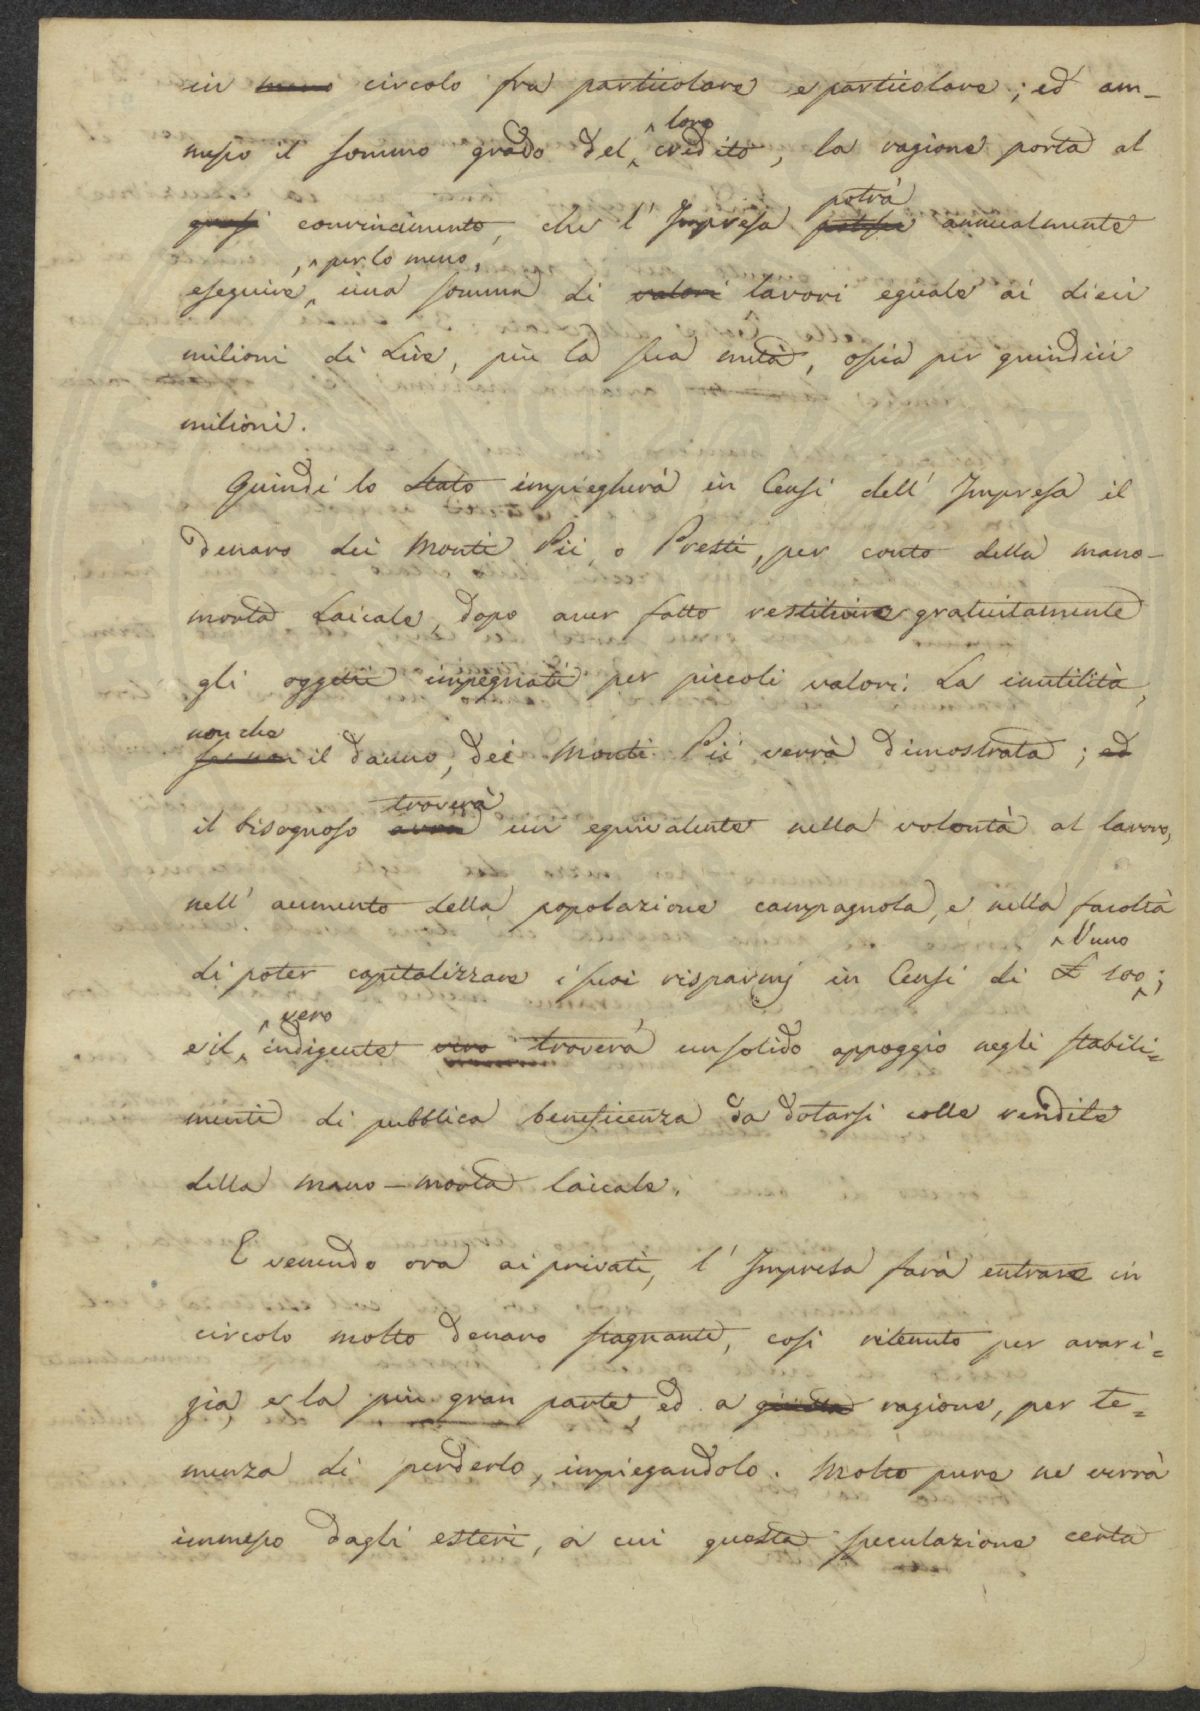 in ~~meno~~ circolo fra particolare e particolare; ed am-
messo il sommo grado del ^loro credito, la ragione porta al
~~quasi~~ convincimento, che l'Impresa ~~potesse~~ potrà annualmente
eseguire, ^per lo meno, una somma di ~~valori~~ lavori eguale ai dieci
milioni di Lire, più la sua metà, ossia per quindici
milioni.
Quindi lo Stato impiegherà in Censi dell'Impresa il
denaro dei Monti Pii o Presti, per conto della mano-
morta Laicale, dopo aver fatto restituire gratuitamente
gli oggetti impegnati per piccoli valori. La inutilità,
nonche il danno, dei Monti Pii verrà dimostrata; ~~ed~~
il bisognoso ~~avrà~~ troverà un equivalente nella volontà al lavoro,
nell'aumento della popolazione campagnola, e nella facoltà
di poter capitalizzare i suoi risparmj in Censi di £ 100 ^l'uno;
e il ^vero indigente ~~vero~~ troverà un solido appoggio negli stabili=
menti di pubblica beneficenza da dotarsi colle rendite
della mano-morta laicale.
E venendo ora ai privati, l'Impresa farà entrare in
circolo molto denaro stagnante, così ritenuto per avari=
zia, e la più gran parte, ed a ~~giusta~~ ragione, per te=
menza di perderlo, impiegandolo. Molto pure ne verrà
immesso dagli esteri, a cui questa speculazione certa